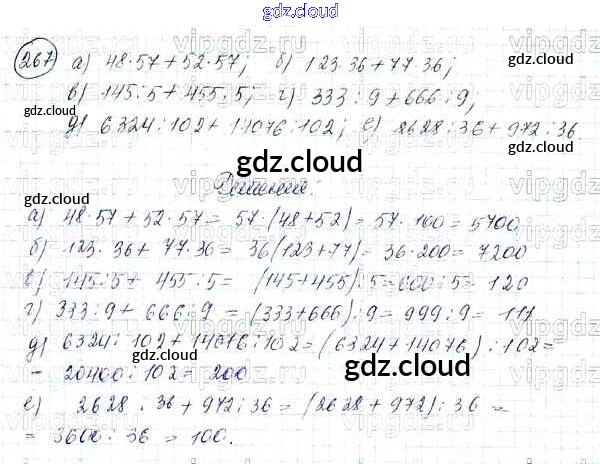 gdz.cloud
267 а) 48·57+52·57; б) 123·36+77·36;
в) 145:5+455:5; г) 333:9+666:9;
д) 6324:102+14076:102; е) 2628:36+972:36.
gdz.cloud
Решение:
а) 48·57+52·57= 57·(48+52)= 57·100=5700
б) 123·36+77·36= 36(123+77)= 36·200=7200
в) 145:5+455:5= (145+455):5=600:5=120
г) 333:9+666:9=(333+666):9=999:9=111
д) 6324:102+14076:102=(6324+14076):102=
= 20400:102=200
е) 2628:36+972:36=(2628+972):36=
= 3600:36=100.